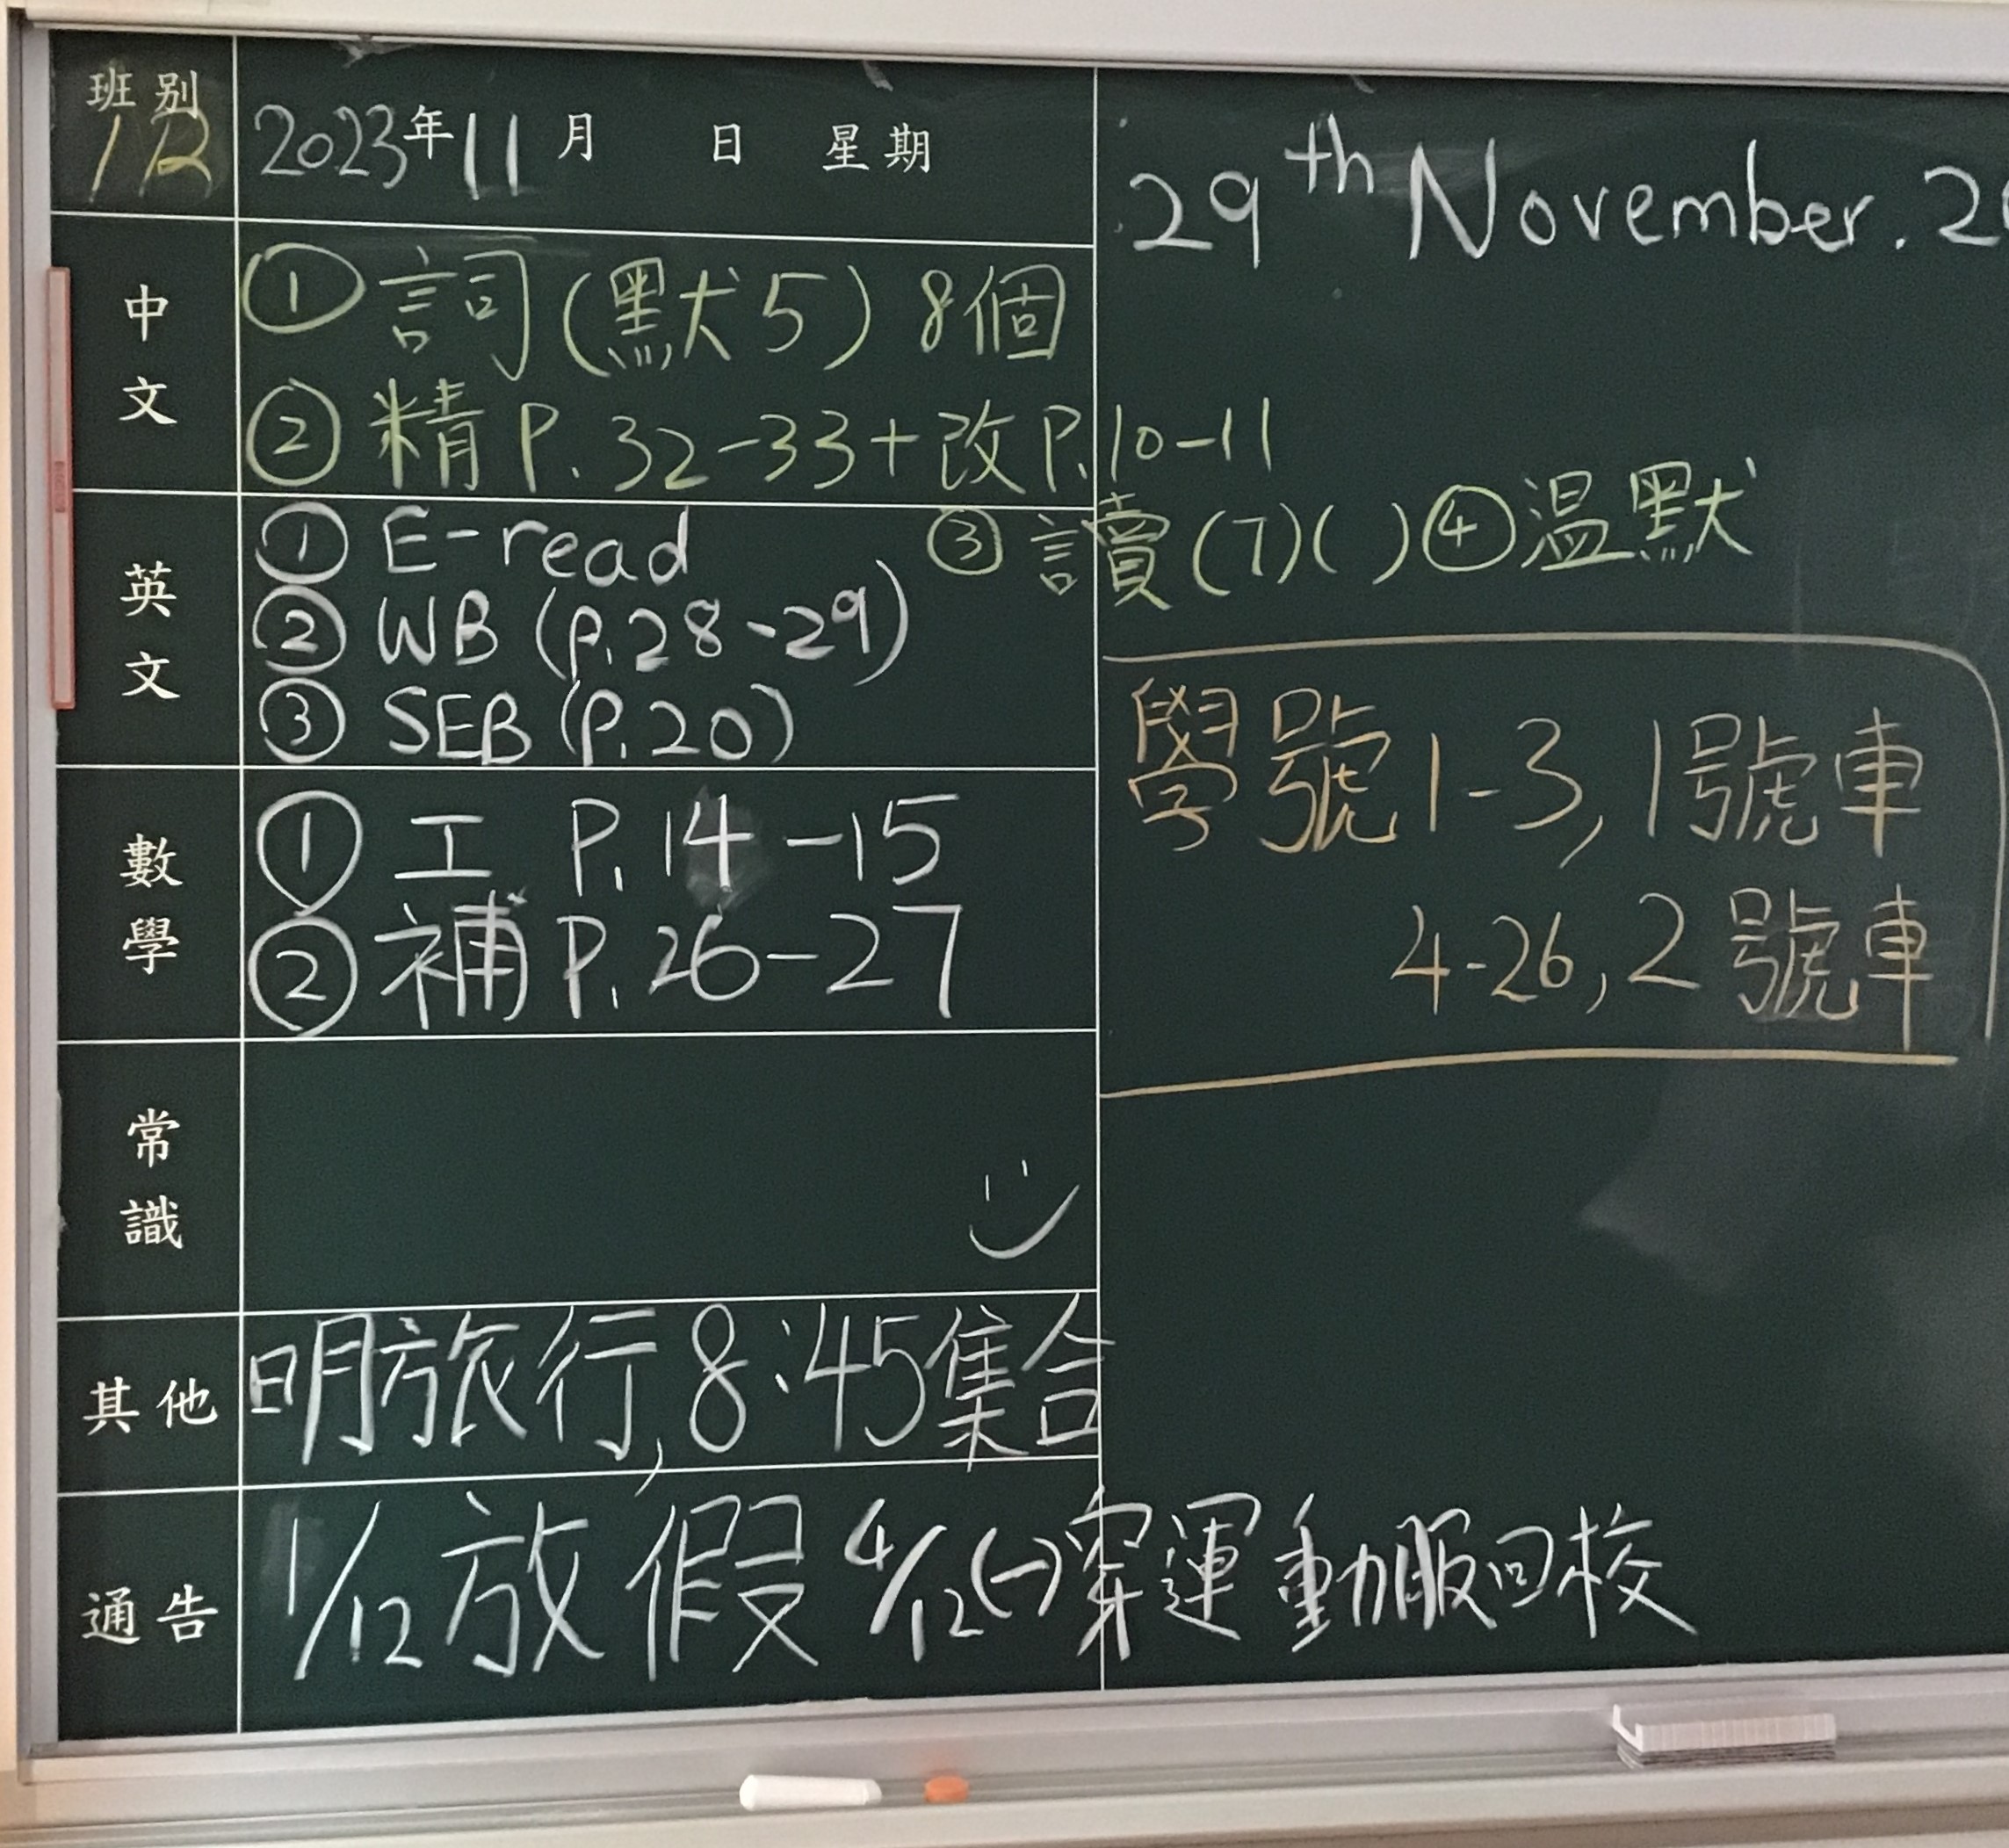 班別
1B
2023年11月 日 星期
29th November. 2
中文
① 詞(默5) 8個
② 精 P. 32-33+改 P. 10-11
③ 讀(7)( ) ④ 温默
英文
① E-read
② WB (P. 28-29)
③ SEB (P. 20)
數學
① 工 P. 14-15
② 補 P. 26-27
學號 1-3, 1號車
4-26, 2號車
常識
其他
明旅行, 8:45集合
通告
1/12 放假 4/12(一)穿運動服回校